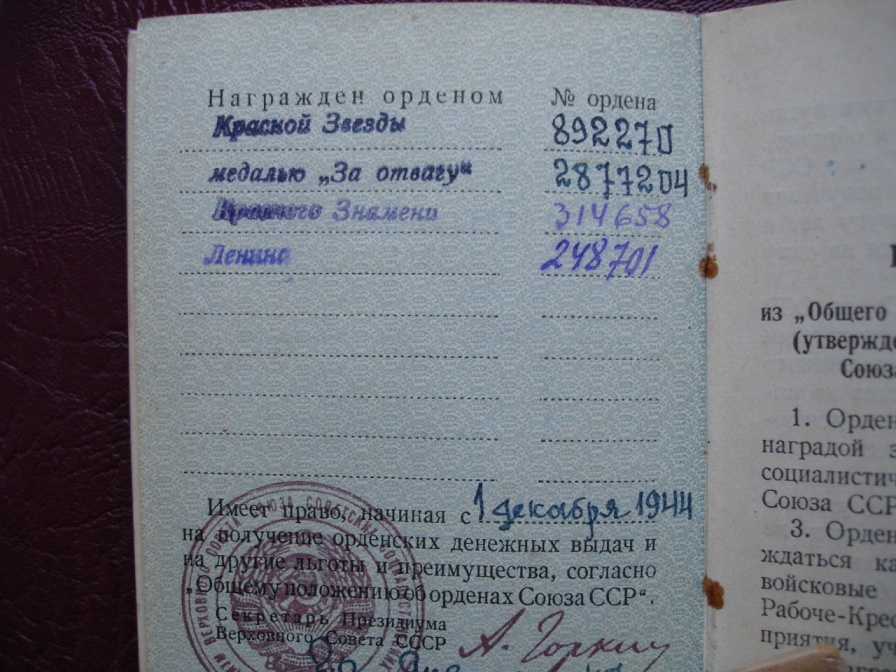 Награжден орденом № ордена
Красной Звезды 892270
медалью „За отвагу“ 2877204
Красного Знамени 314658
Ленина 248701
Имеет право, начиная с 1 декабря 1944
на получение орденских денежных выдач и
на другие льготы и преимущества, согласно
„Общему положению об орденах Союза ССР“.
Секретарь Президиума
Верховного Совета СССР
А. Горкин
из „Общего
(утвержде
Союза
1. Орден
наградой з
социалистич
Союза ССР
3. Орден
ждаться ка
войсковые
Рабоче-Крес
приятия, у